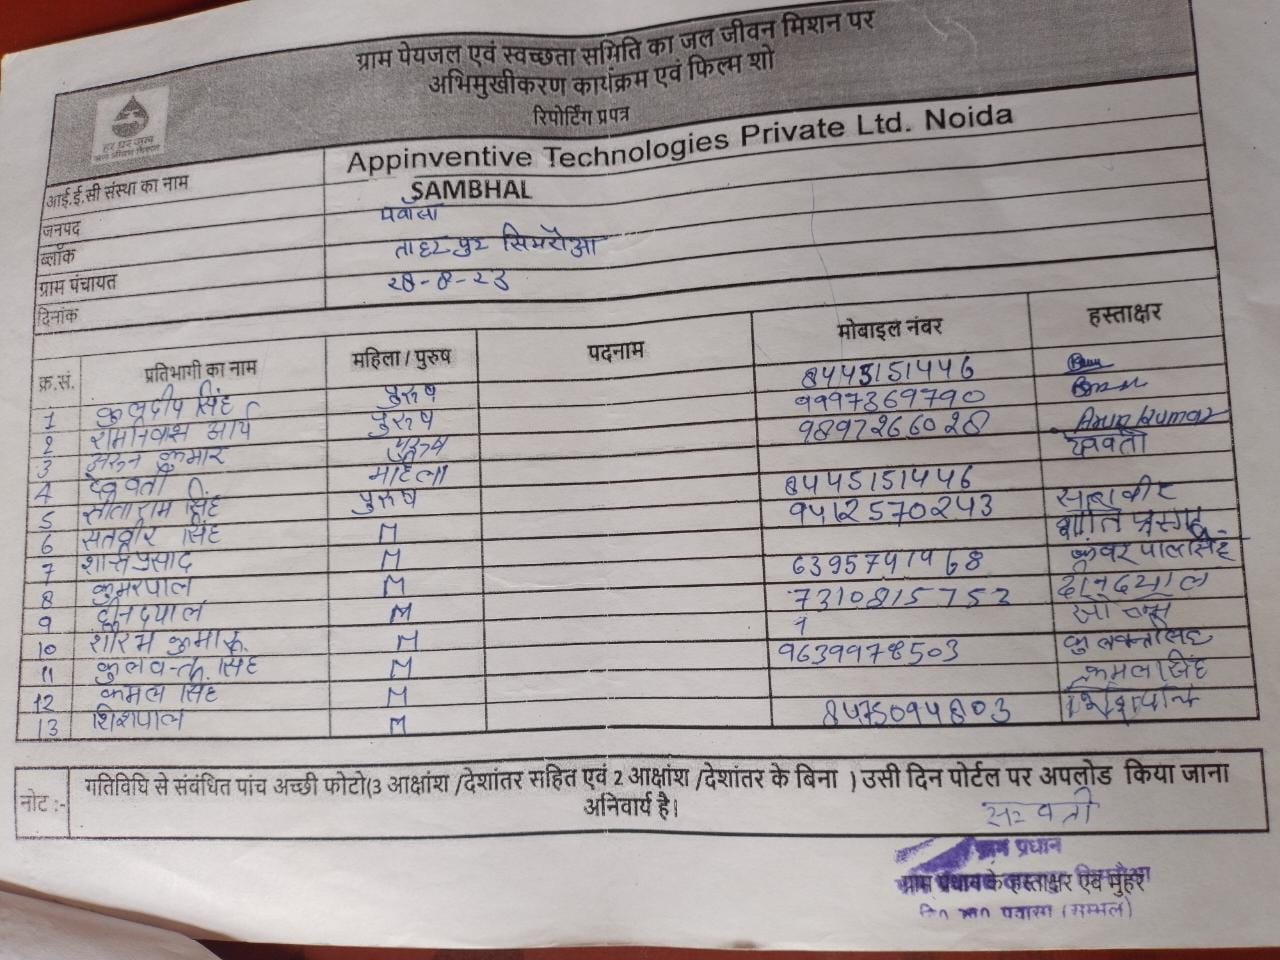 ग्राम पेयजल एवं स्वच्छता समिति का जल जीवन मिशन पर
अभिमुखीकरण कार्यक्रम एवं फिल्म शो
रिपोर्टिंग प्रपत्र
हर घर जल
जल जीवन मिशन
आई.ई.सी संस्था का नाम Appinventive Technologies Private Ltd. Noida
जनपद SAMBHAL
ब्लॉक पवांसा
ग्राम पंचायत ताहरपुर सिमरौआ
दिनांक 28-8-23
क्र.सं. प्रतिभागी का नाम महिला / पुरुष पदनाम मोबाइल नंबर हस्ताक्षर
1 कुलदीप सिंह पुरुष 8445151446
2 रामनिवास आर्य पुरुष 9997369790
3 अरुन कुमार पुरुष 9897266028 Arun Kumar
4 देववती महिला देववती
5 सीताराम सिंह पुरुष 8445151446
6 सतवीर सिंह M 9412570243 सतवीर
7 शान्ति प्रसाद M शांति प्रसाद
8 कुमरपाल M 6395741968 कुवर पाल सिंह
9 दीनदयाल M 7310815752 दीनदयाल
10 कुमार M
11 कुलवन्त सिंह M 9639978503 कुलवन्त सिंह
12 कमल सिंह M कमल सिंह
13 शिशपाल M 8475094803 शिशपाल
नोट :- गतिविधि से संबंधित पांच अच्छी फोटो(3 आक्षांश /देशांतर सहित एवं 2 आक्षांश /देशांतर के बिना ) उसी दिन पोर्टल पर अपलोड किया जाना
अनिवार्य है।
ग्राम प्रधान
ग्राम प्रधान के हस्ताक्षर एवं मुहर
पवासा (सम्भल)